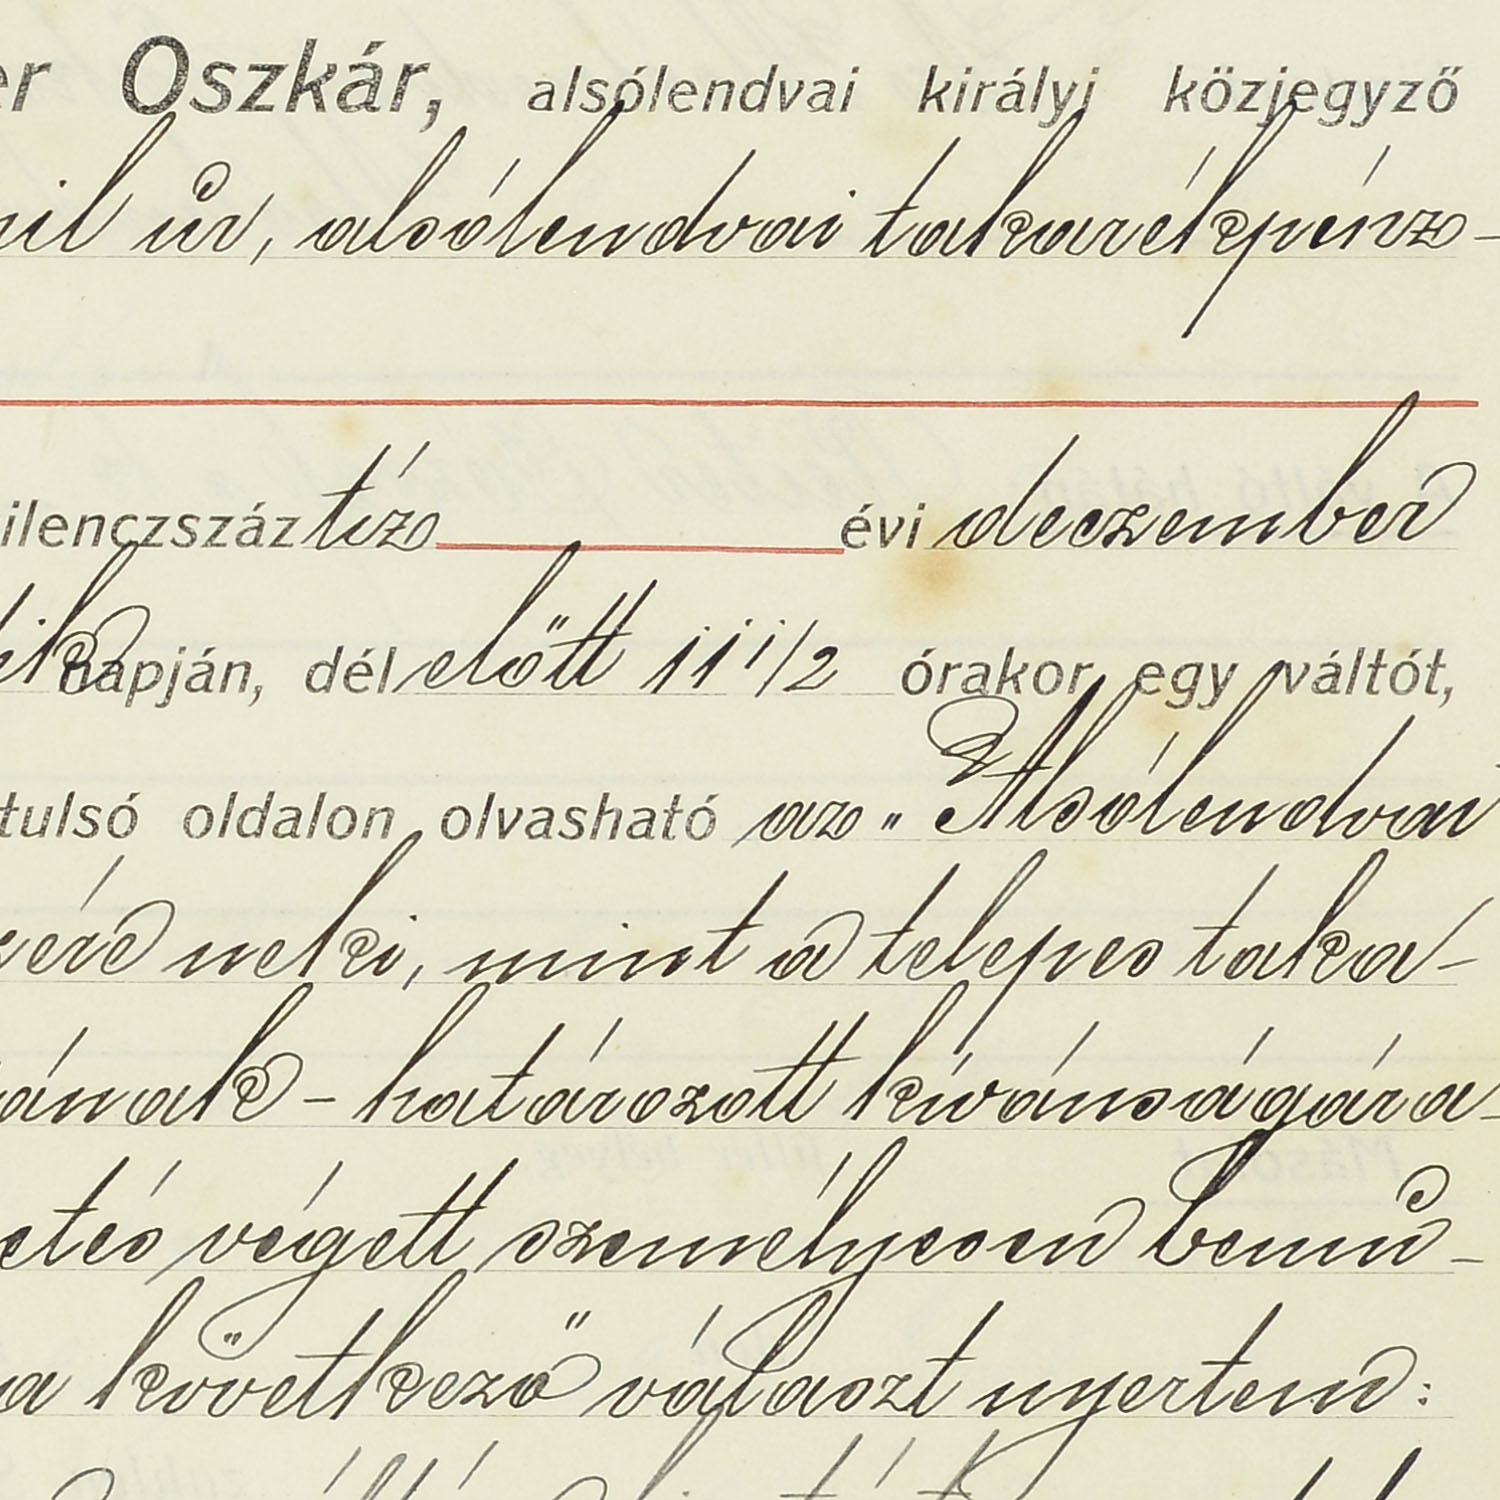 er Oszkár, alsólendvai királyi közjegyző
il úr, alsólendvai takarékpénz-
ilenczszáz tíz évi deczember
dik napján, dél előtt 11 1/2 órakor egy váltót,
tulsó oldalon olvasható az „Alsólendvai
neki, mint a telepes taka-
ának - határozott kívánságára-
etés végett személyesen bemu-
a következő választ nyertem: